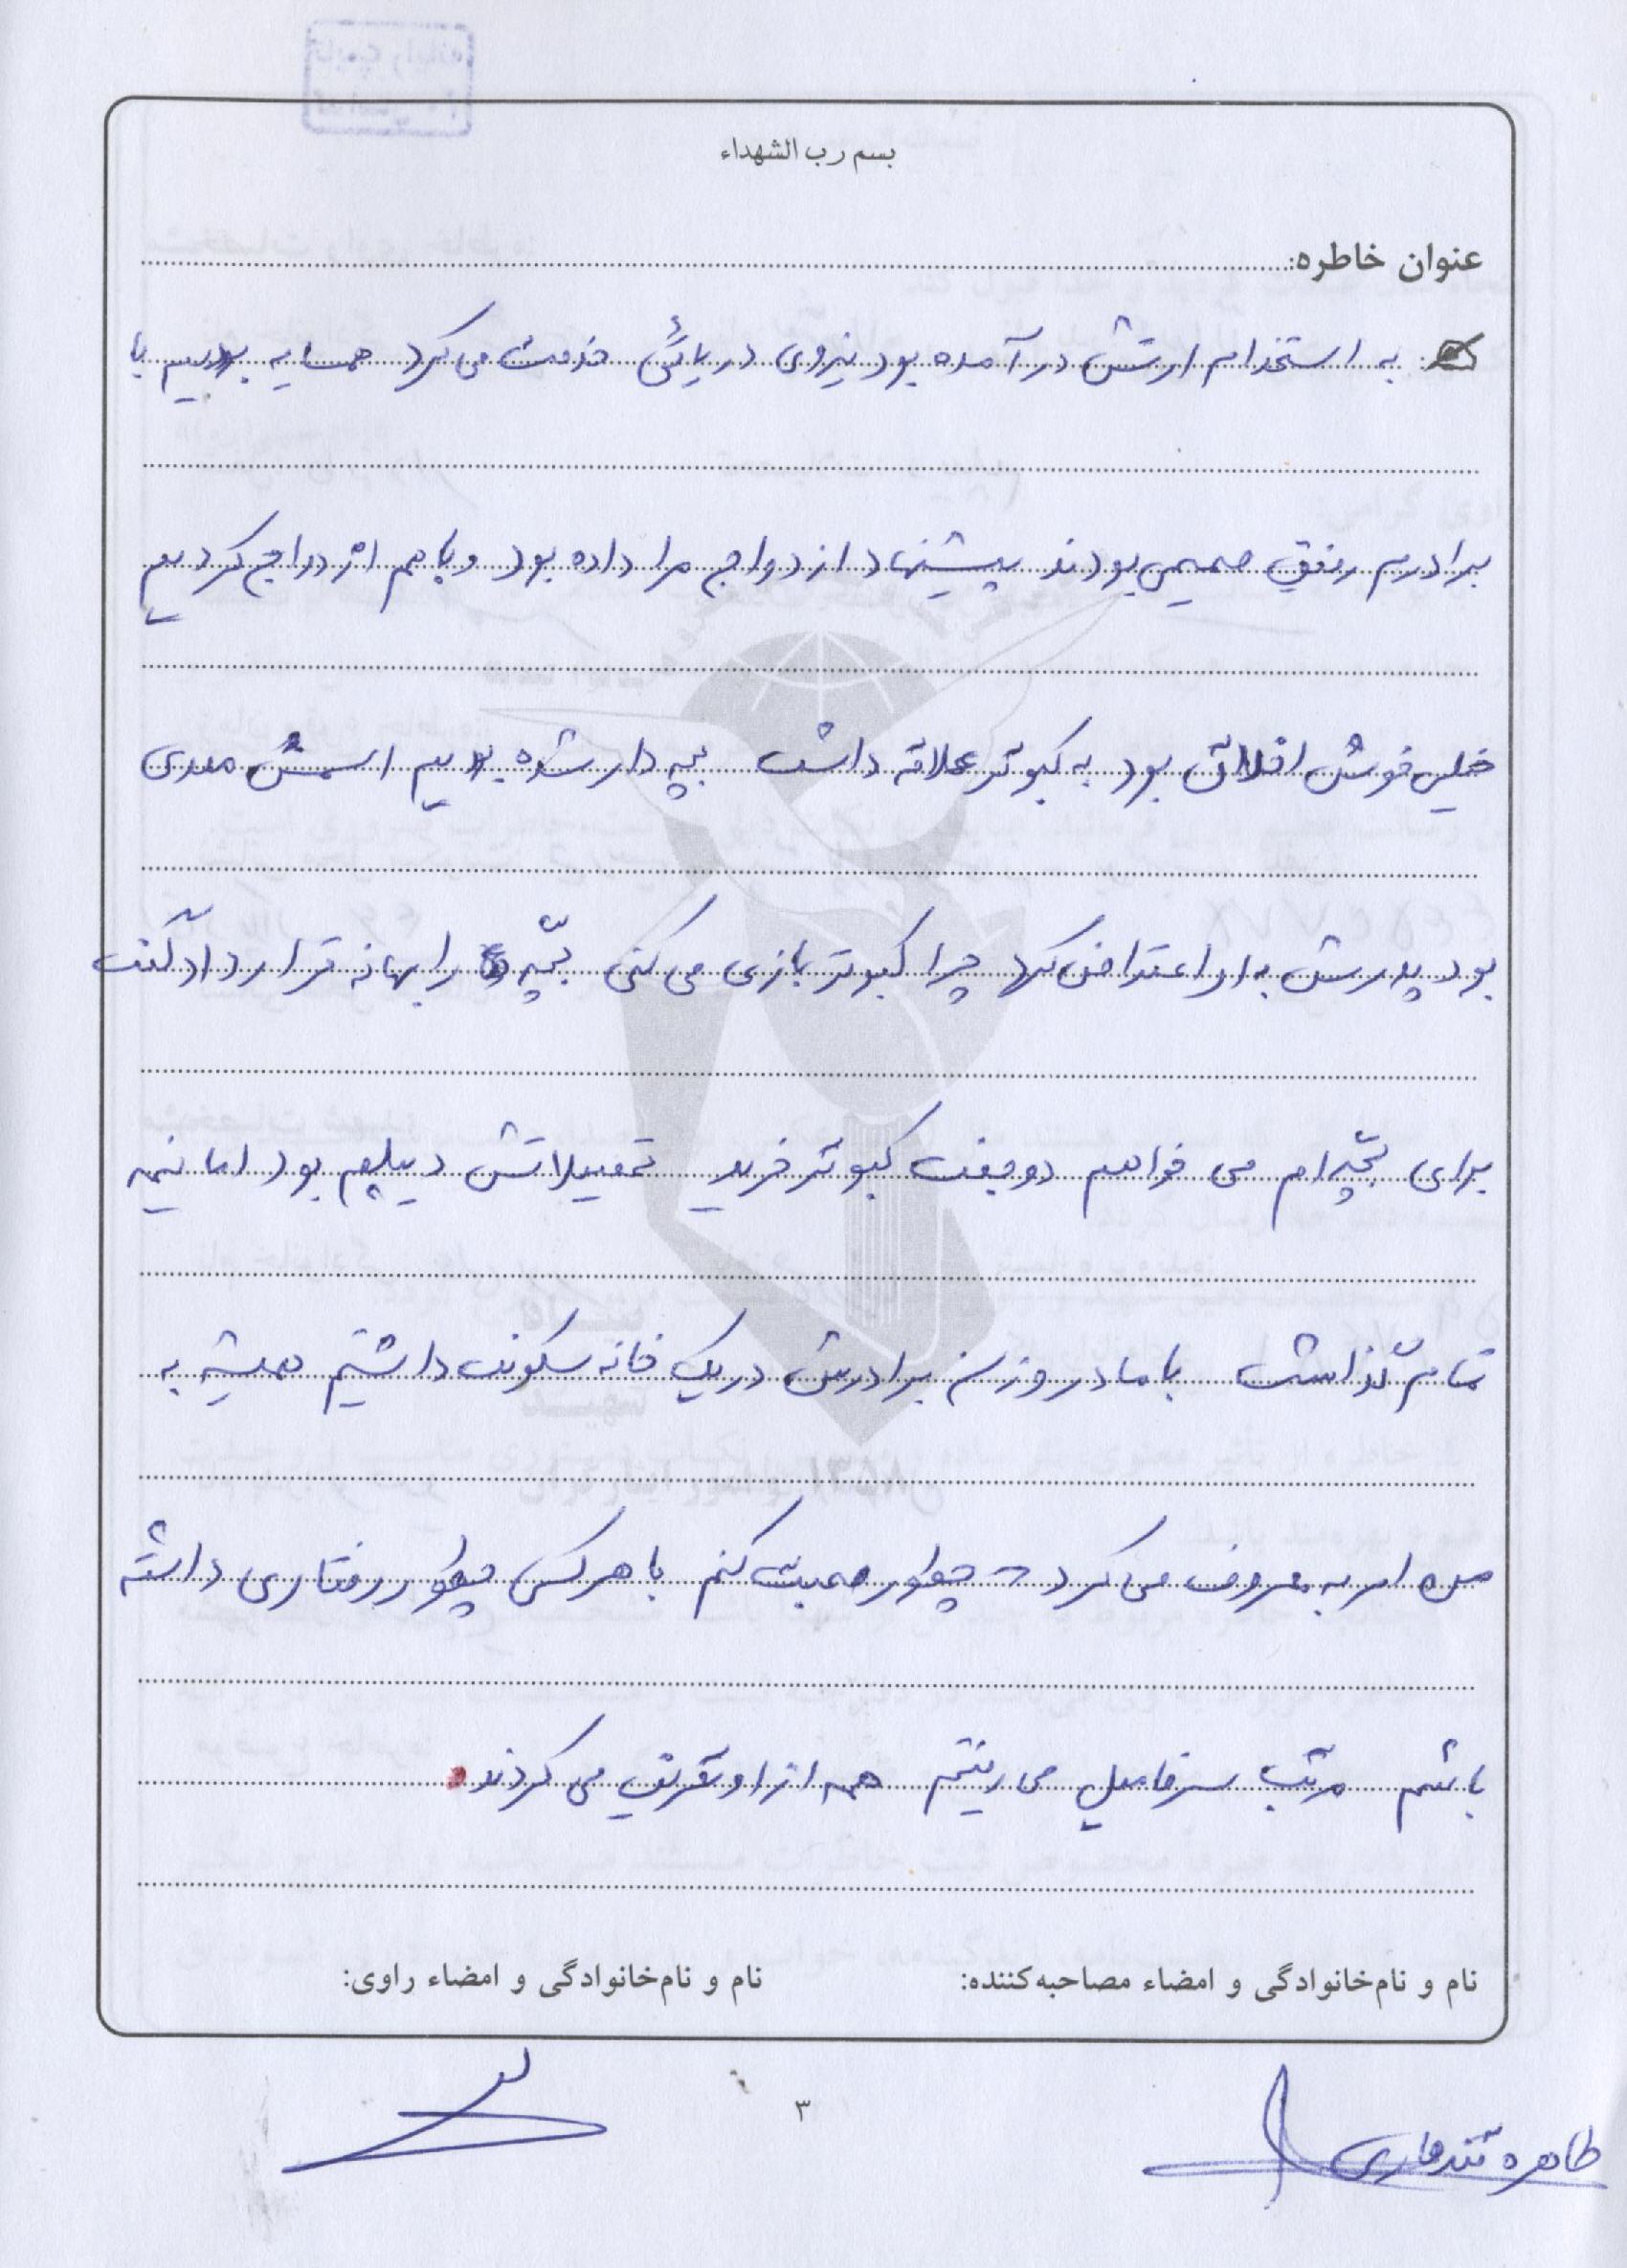 بسم رب الشهداء
عنوان خاطره:
به استخدام ارتش در آمده بود نیروی دریائی خدمت می کرد همسایه بودیم با
برادرم رفیق صمیمی بودند پیشنهاد ازدواج مرا داده بود و با هم ازدواج کردیم
خیلی خوش اخلاق بود به کبوتر علاقه داشت بچه دار شده بودیم اسمش مهدی
بود پدرش به او اعتراض که چرا کبوتر بازی می کنی بچّه را بهانه قرار داد گفت
برای بچّه ام می خواهم دو جفت کبوتر خرید تحصیلاتش دیپلم بود اما نیمه
تمام گذاشت با مادر و زن برادرش در یک خانه سکونت داشتیم همیشه به
من امر به معروف می کرد چطور صحبت کنم با هر کس چطور رفتاری داشته
باشم مرتب سر فامیل می رفتیم همه از او تعریف می کردند
نام و نام‌خانوادگی و امضاء مصاحبه‌کننده: نام و نام‌خانوادگی و امضاء راوی:
طاهره قندهاری
۳